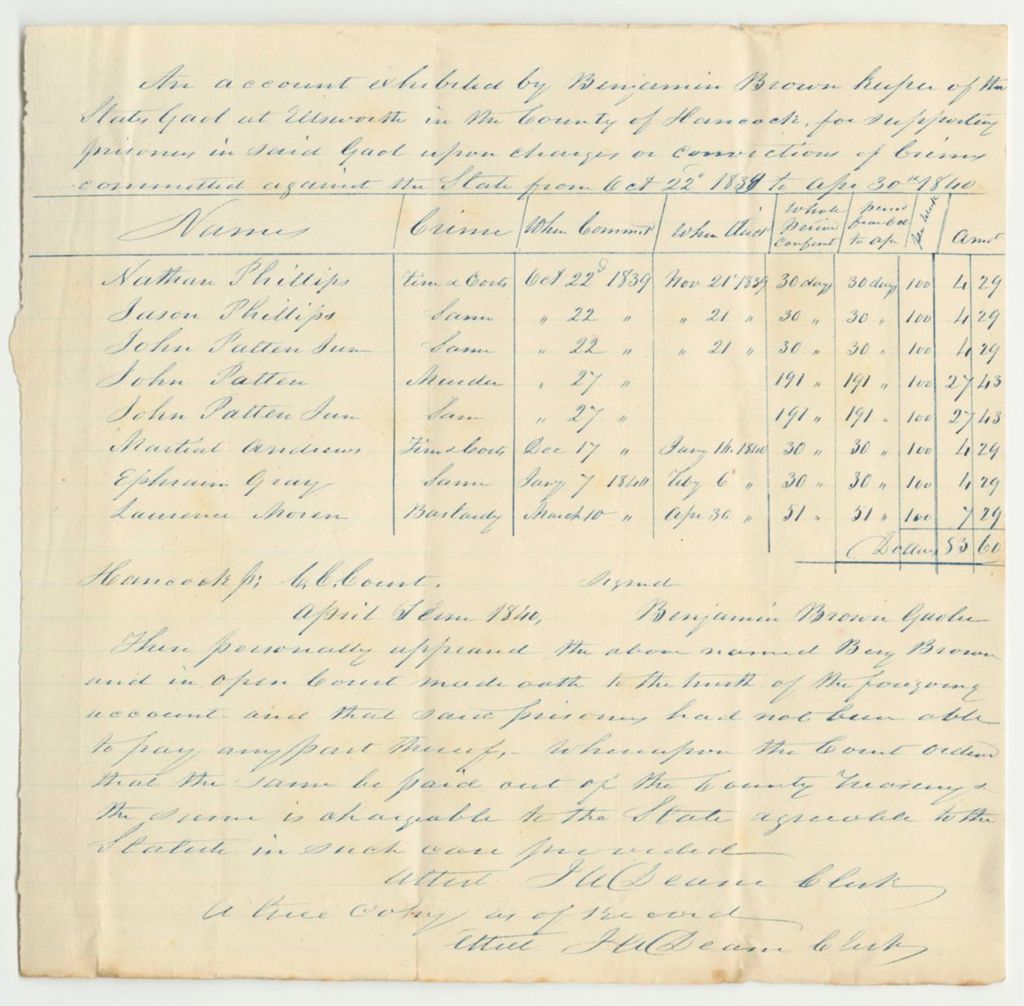 An account exhibited by Benjamin Brown keeper of the
States Gaol at Ellsworth in the County of Hancock, for supporting
prisoners in said Gaol upon charges or convictions of Crimes
committed against the State from Oct 22d 1839 to Apr 30th 1840
Names Crime When Commit When Disct Whole period confint period from Oct to Apr per Week Amt
Nathan Phillips Fine & Costs Oct 22d 1839 Nov 21st 1839 30 days 30 days 100 4 29
Jason Phillips Same " 22 " " 21 " 30 " 30 " 100 4 29
John Patten Jun Same " 22 " " 21 " 30 " 30 " 100 4 29
John Patten Murder " 27 " 191 " 191 " 100 27 43
John Patten Jun Sam " 27 " 191 " 191 " 100 27 43
Martial Andrews Fine & Costs Dec 17 " Jany 16. 1840 30 " 30 " 100 4 29
Ephraim Gray Same Jany 7 1840 Feby 6 " 30 " 30 " 100 4 29
Laurence Moren Bastardy March 10 " Apr 30 " 51 " 51 " 100 7 29
Dollars 83 60
Hancock ss; C. C. Court. Signed
April Term 1840, Benjamin Brown Gaoler
Then personally appeared the above named Benj Brown
and in open Court made oath to the truth of the foregoing
account and that said prisoners had not been able
to pay any part thereof,. Whereupon the Court ordered
that the same be paid out of the County Treasury &
the same is chargeable to the State agreeable to the
Statute in such case provided
Attest J A Deane Clerk
A true copy as of Record
Attest J A Deane Clerk